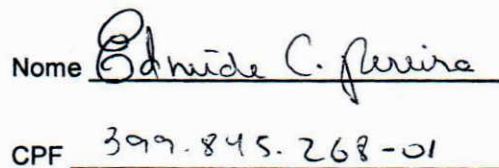 Nome Edneide C. Pereira
CPF 399.845.268-01